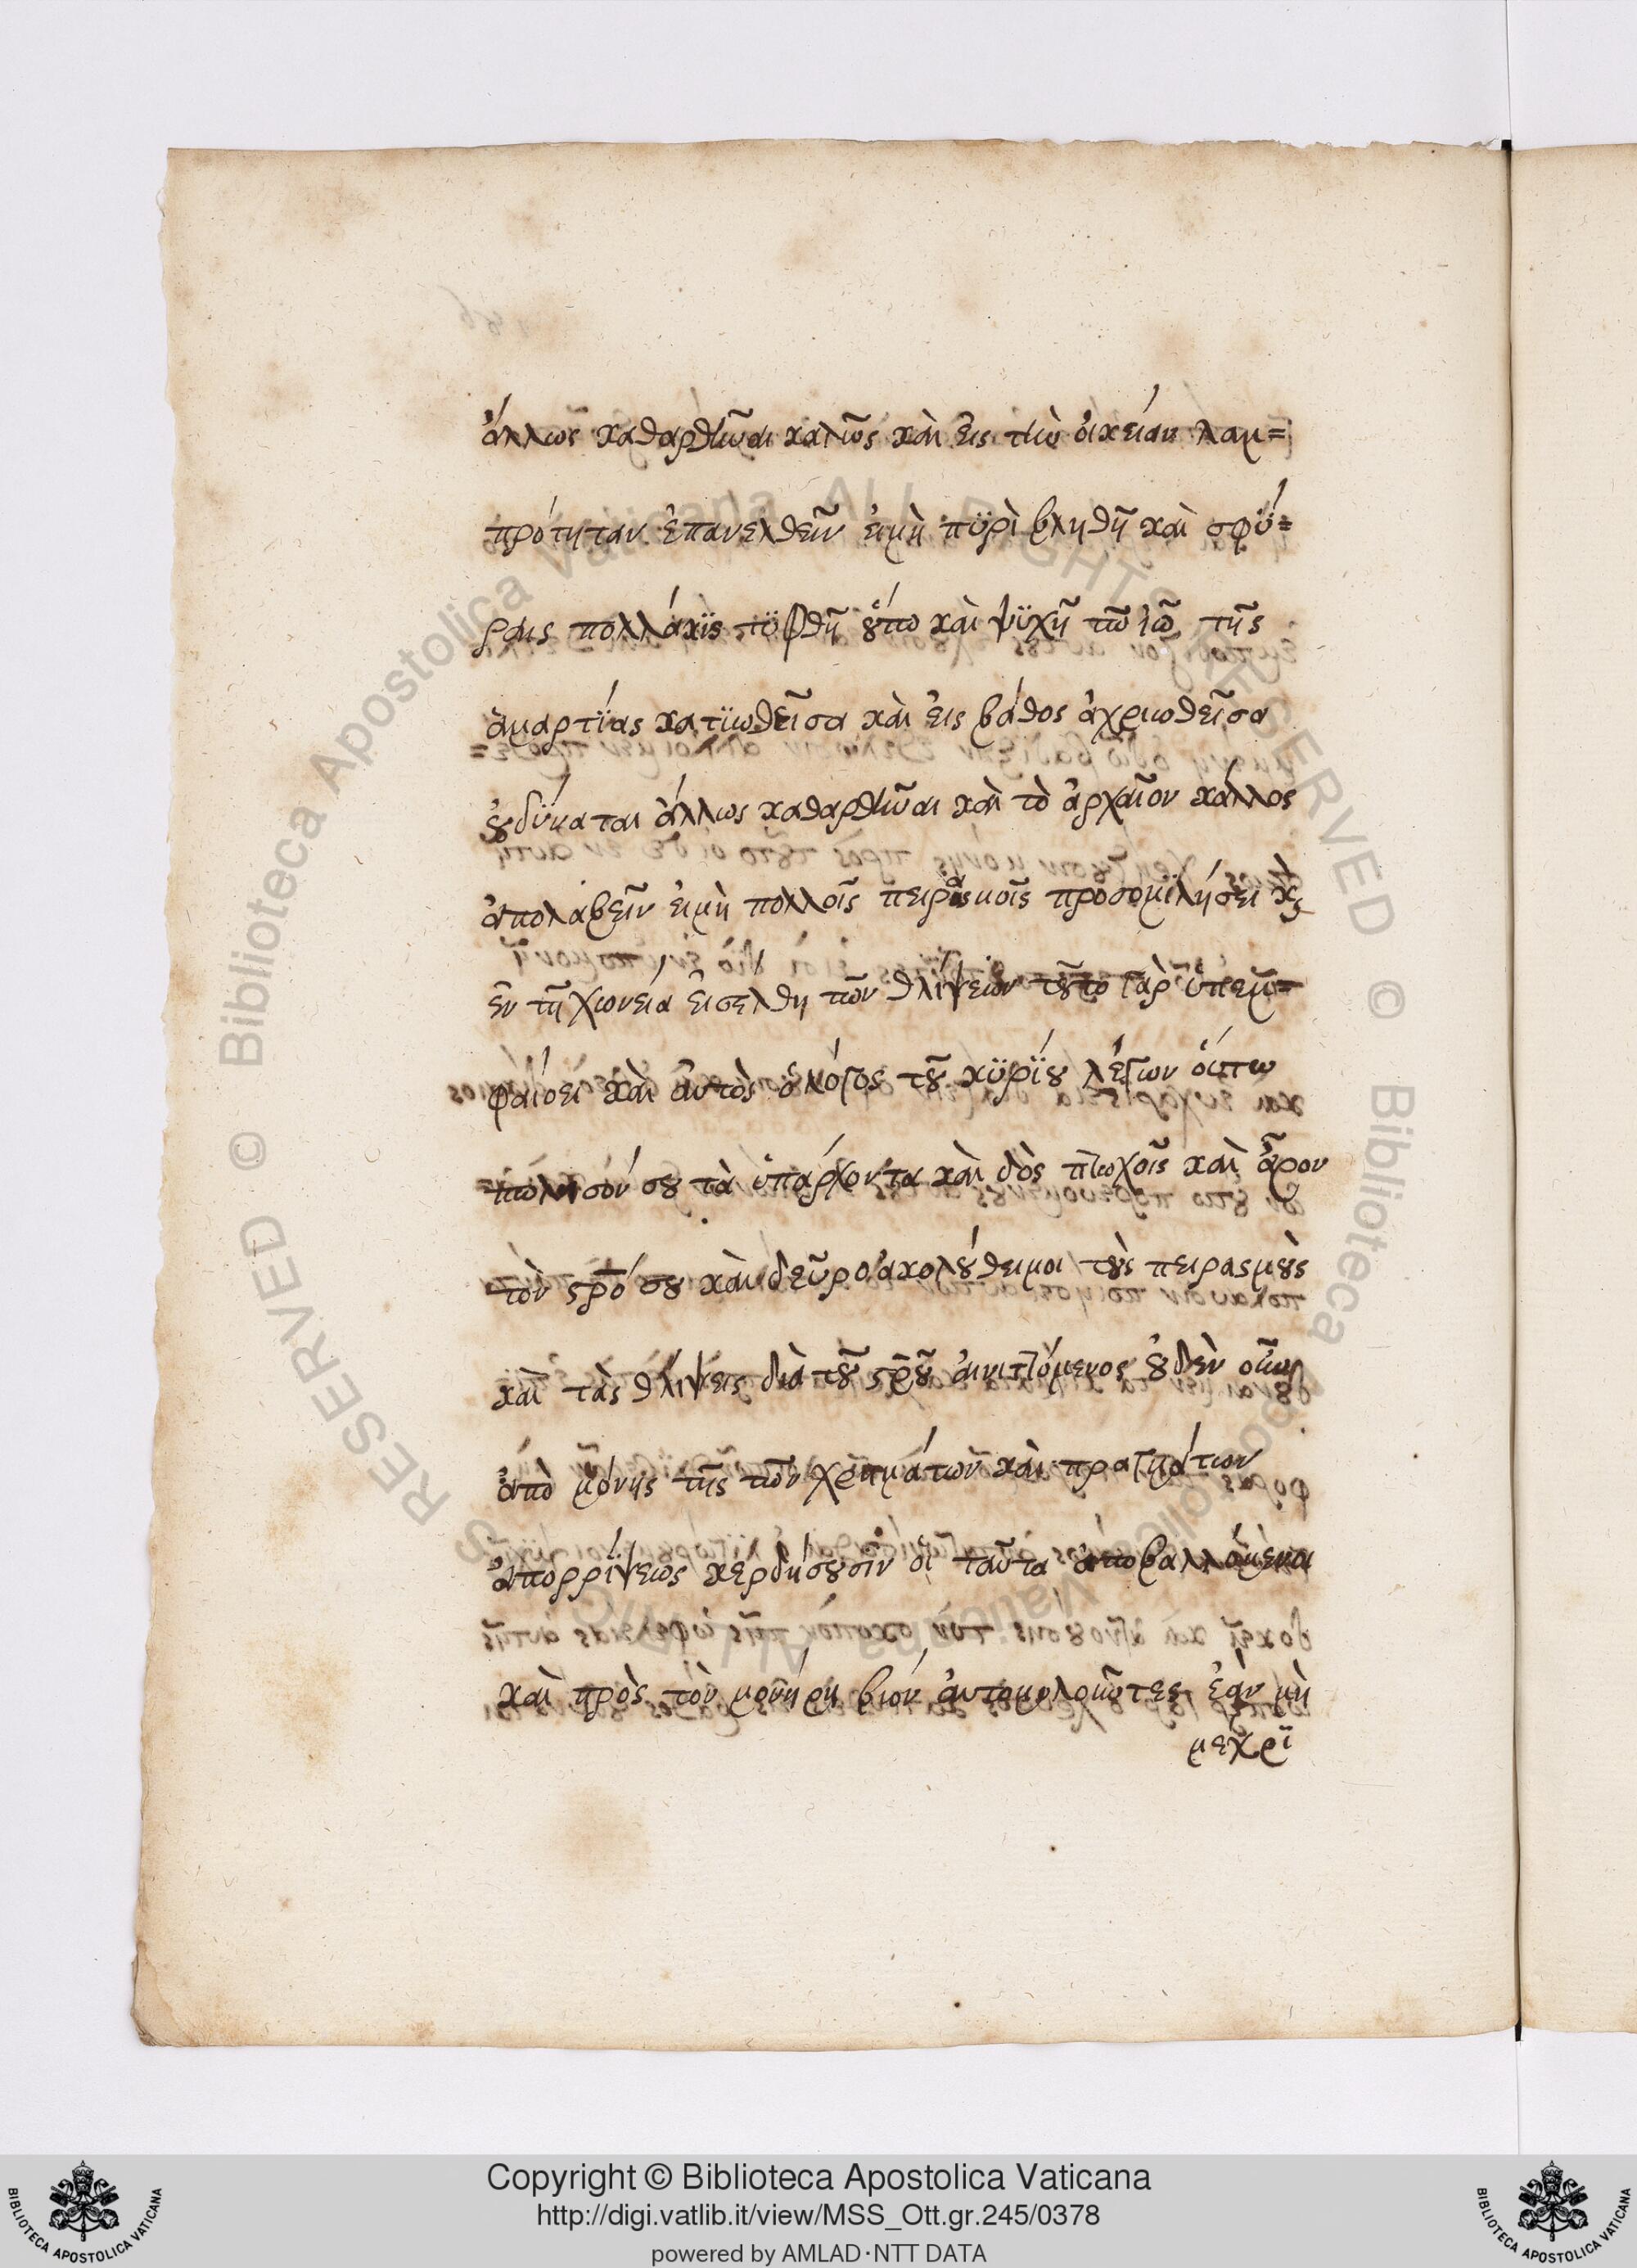 ἄλλως καθαρθῆναι καλῶς καὶ εἰς τὴν οἰκείαν λαμ=
πρότηταν ἐπανελθεῖν εἰμὴ πϋρὶ βληθῆ καὶ σφϋ=
ραις πολλάκϊς τϋφθῆ οὕτω καὶ ψϋχῆ τῶ ἰῶ τῆς
ἁμαρτΐας κατϊωθεῖσα καὶ εἰς βάθος ἀχρειωθεῖσα
οὐ δύναται ἄλλως καθαρθῆναι καὶ τὸ ἀρχαῖον κάλλος
ἀπολαβεῖν εἰμὴ πολλοῖς πειρασμοῖς προσομϊλήσει κ
ἐν τῆ χωνεία εἰσελθη τῶν θλίψεων τοῦτο γὰρ ὑπεμ=
φαίσει καὶ αὐτὸς ὁ λόγος τοῦ κϋρΐου λέγων οὕτω
πώλησόν σου τὰ ὑπάρχοντα καὶ δὸς πτωχοῖς καὶ ἆρον
τὸν σρό σου καὶ δεῦρο ἀκολούθειμοι τοὺς πειρασμοὺς
καὶ τὰς θλίψεις διὰ τοῦ σροῦ αἰνιττόμενος οὐδὲν οὖν
ἀπὸ μόνης τῆς τῶν χρημάτων καὶ πραγμάτων
ἀπορρίψεως κερδήσουσιν οἱ ταῦτα ἀποβαλλόμενοι
καὶ πρὸς τὸν μονήρη βίον αὐτομολοῦντες ἐὰν μὴ
μεχρϊ
Copyright © Biblioteca Apostolica Vaticana
http://digi.vatlib.it/view/MSS_Ott.gr.245/0378
powered by AMLAD·NTT DATA